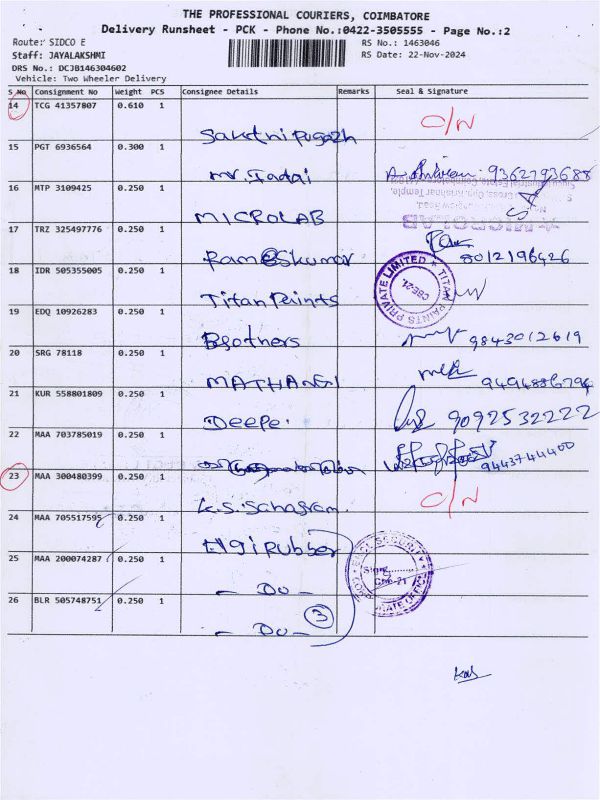 THE PROFESSIONAL COURIERS, COIMBATORE
Delivery Runsheet - PCK - Phone No.:0422-3505555 - Page No.:2
Route: SIDCO E
RS No.: 1463046
Staff: JAYALAKSHMI
RS Date: 22-Nov-2024
DRS No.: DCJB146304602
Vehicle: Two Wheeler Delivery
S No Consignment No Weight PCS Consignee Details Remarks Seal & Signature
14 TCG 41357807 0.610 1 O/N
Sakthi Pugazh
15 PGT 6936564 0.300 1
Mr. Jadai 9362793688
16 MTP 3109425 0.250 1
MICROLAB MICROLAB
17 TRZ 325497776 0.250 1
Rameskumar 8012196426
18 IDR 505355005 0.250 1
Titan Paints TITAN PAINTS PRIVATE LIMITED CBE-21
19 EDQ 10926283 0.250 1
Brothers 9843012619
20 SRG 78118 0.250 1
MATHANGI 9494886796
21 KUR 558801809 0.250 1
Deepe. 9092532222
22 MAA 703785019 0.250 1
9443744400
23 MAA 300480399 0.250 1 O/N
K.S. Sahasram
24 MAA 705517595 0.250 1
Elgi Rubber
25 MAA 200074287 0.250 1
- Do -
26 BLR 505748751 0.250 1
- Do - 3